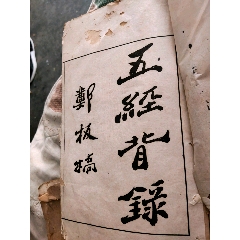 五經背錄
鄭板橋